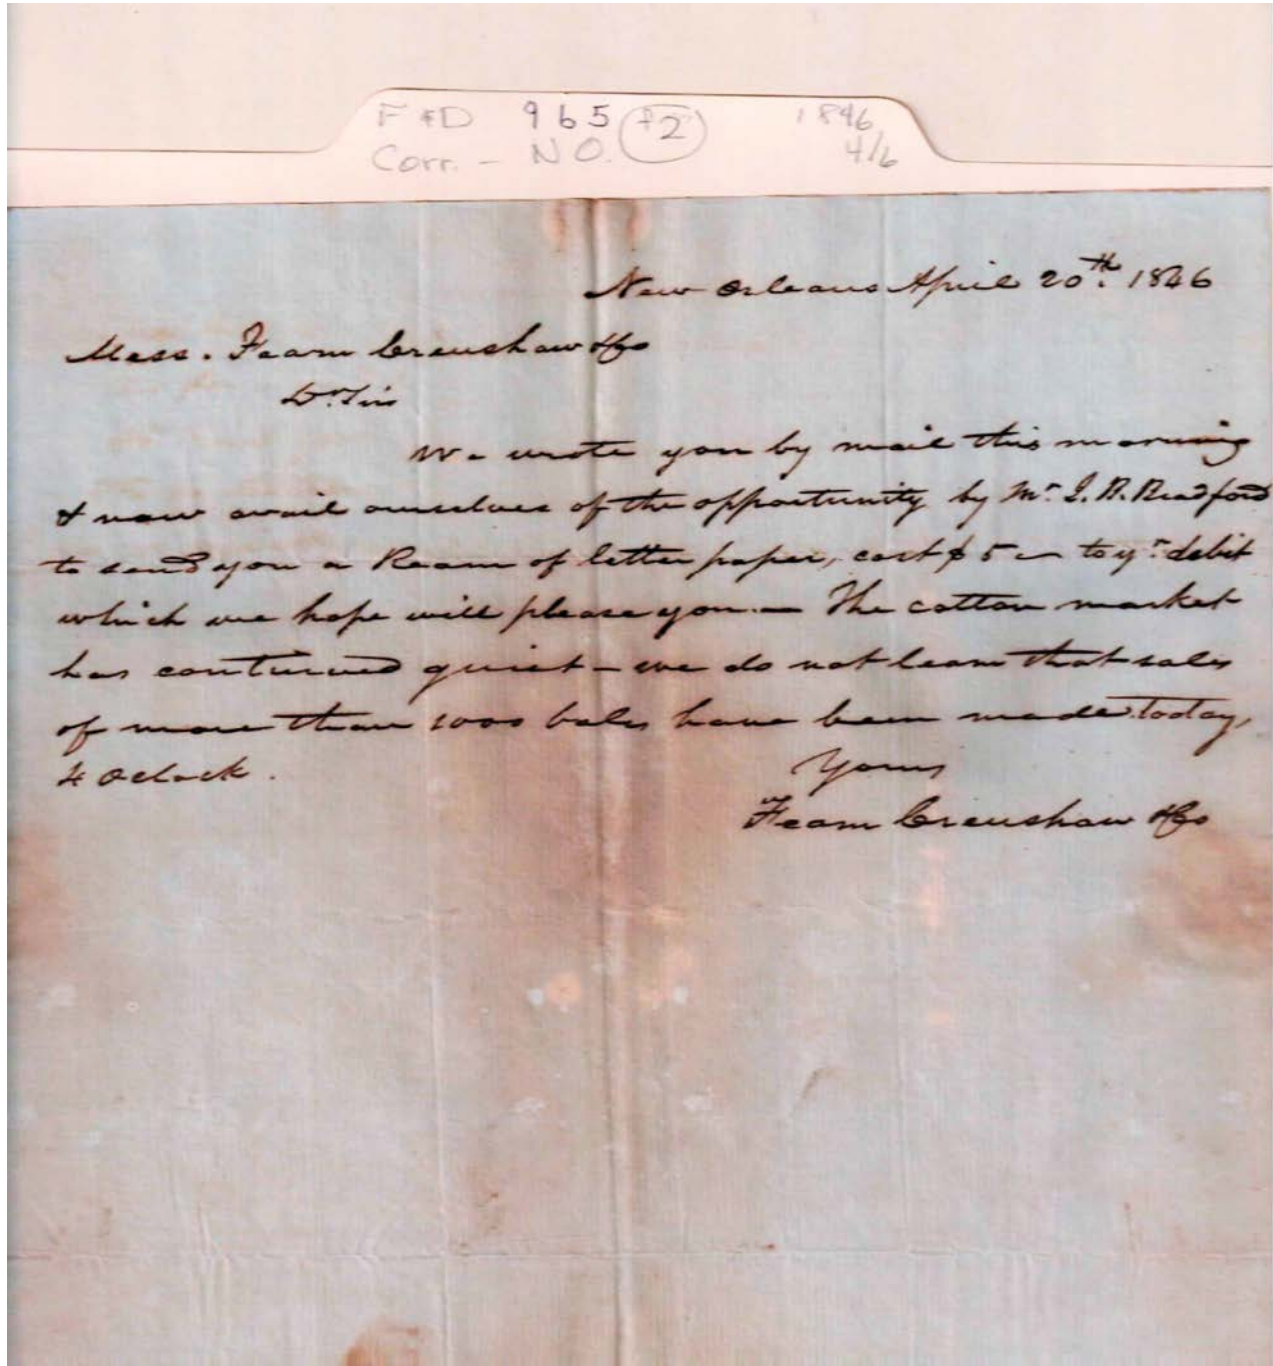 F & D 965 (+2) 1846
Corr. - N.O. 4/6
New Orleans April 20th. 1846
Mess. Fearn Crenshaw & Co
Dr. Sirs
We wrote you by mail this morning
& now avail ourselves of the opportunity by Mr. J. R. Bradford
to send you a Ream of letter paper, cost $5 — to yr. debit
which we hope will please you. — The cotton market
has continued quiet — we do not learn that sales
of more than 1000 bales have been made today,
4 Oclock.
Yours
Fearn Crenshaw & Co